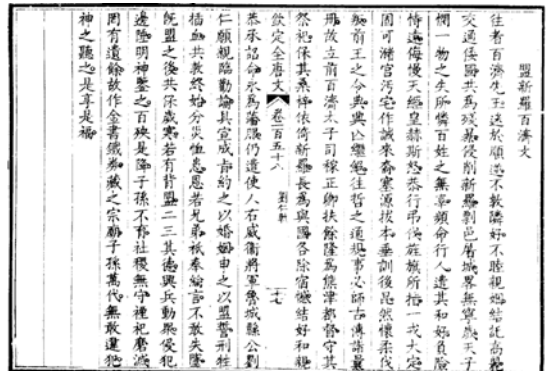 盟新羅百濟文
往者百濟先王迷於順逆不敦鄰好不睦親姻結託高麗
交通倭國共為殘暴侵削新羅剽邑屠城畧無寧歲天子
憫一物之失所憐百姓之無辜頻命行人遣其和好負險
恃遠侮慢天經皇赫斯怒恭行弔伐旌旗所指一戎大定
固可瀦宮污宅作誡來裔塞源拔本垂訓後昆然懷柔伐
叛前王之令典興亡繼絕往哲之通規事必師古傳諸曩
冊故立前百濟太子司稼正卿扶餘隆為熊津都督守其
祭祀保其桑梓依倚新羅長為與國各除宿憾結好和親
欽定全唐文 卷一百五十八 劉仁軌 十七
恭承詔命永為藩服仍遣使人右威衛將軍魯城縣公劉
仁願親臨勸諭具宣成旨約之以婚姻申之以盟誓刑牲
插血共敦終始分災恤患恩若兄弟祇奉綸言不敢失墜
既盟之後共保歲寒若有背盟二三其德興兵動眾侵犯
邊陲明神鑒之百殃是降子孫不育社稷無守禋祀磨滅
罔有遺餘故作金書鐵券藏之宗廟子孫萬代無敢違犯
神之聽之是享是福